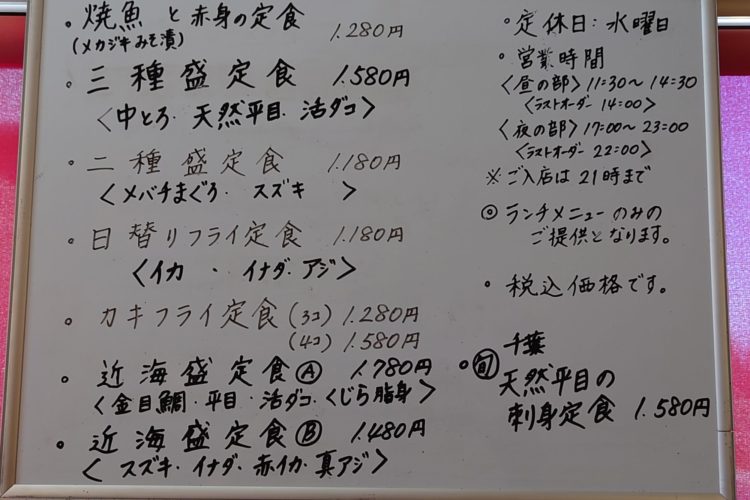 ・焼魚と赤身の定食 1.280円
(メカジキみそ漬)
・三種盛定食 1.580円
〈中とろ・天然平目・活ダコ〉
・二種盛定食 1.180円
〈メバチまぐろ・スズキ 〉
・日替りフライ定食 1.180円
〈イカ・イナダ・アジ〉
・カキフライ定食(3コ) 1.280円
(4コ) 1.580円
・近海盛定食Ⓐ 1.780円
〈金目鯛・平目・活ダコ・くじら脂身〉
・近海盛定食Ⓑ 1.480円
〈スズキ・イナダ・赤イカ・真アジ〉
・定休日:水曜日
・営業時間
〈昼の部〉11:30〜14:30
〈ラストオーダー 14:00〉
〈夜の部〉17:00〜23:00
〈ラストオーダー 22:00〉
※ご入店は21時まで
◎ランチメニューのみの
ご提供となります。
・税込価格です。
・旬 千葉
天然平目の
刺身定食 1.580円